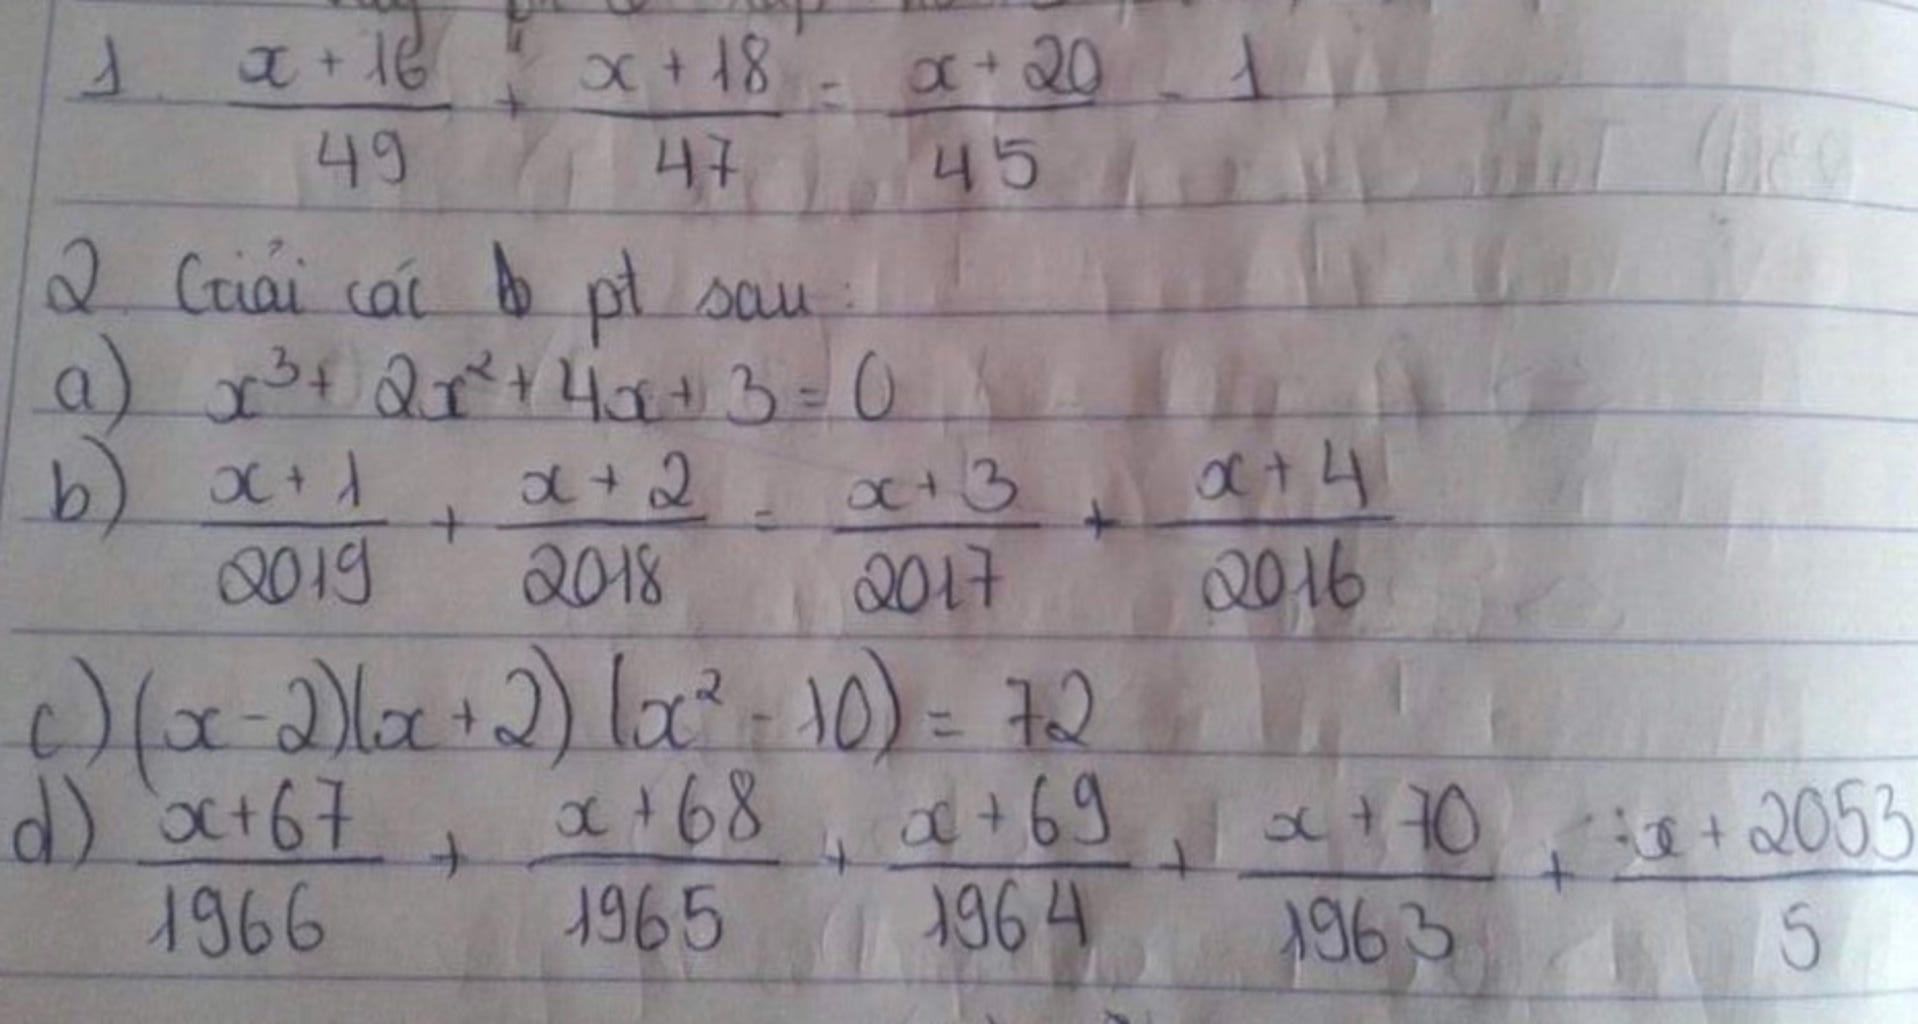 1. (x + 16)/49 + (x + 18)/47 = (x + 20)/45 - 1
2 Giải các pt sau:
a) x³ + 2x² + 4x + 3 = 0
b) (x + 1)/2019 + (x + 2)/2018 = (x + 3)/2017 + (x + 4)/2016
c) (x - 2)(x + 2)(x² - 10) = 72
d) (x + 67)/1966 + (x + 68)/1965 + (x + 69)/1964 + (x + 70)/1963 + (x + 2053)/5